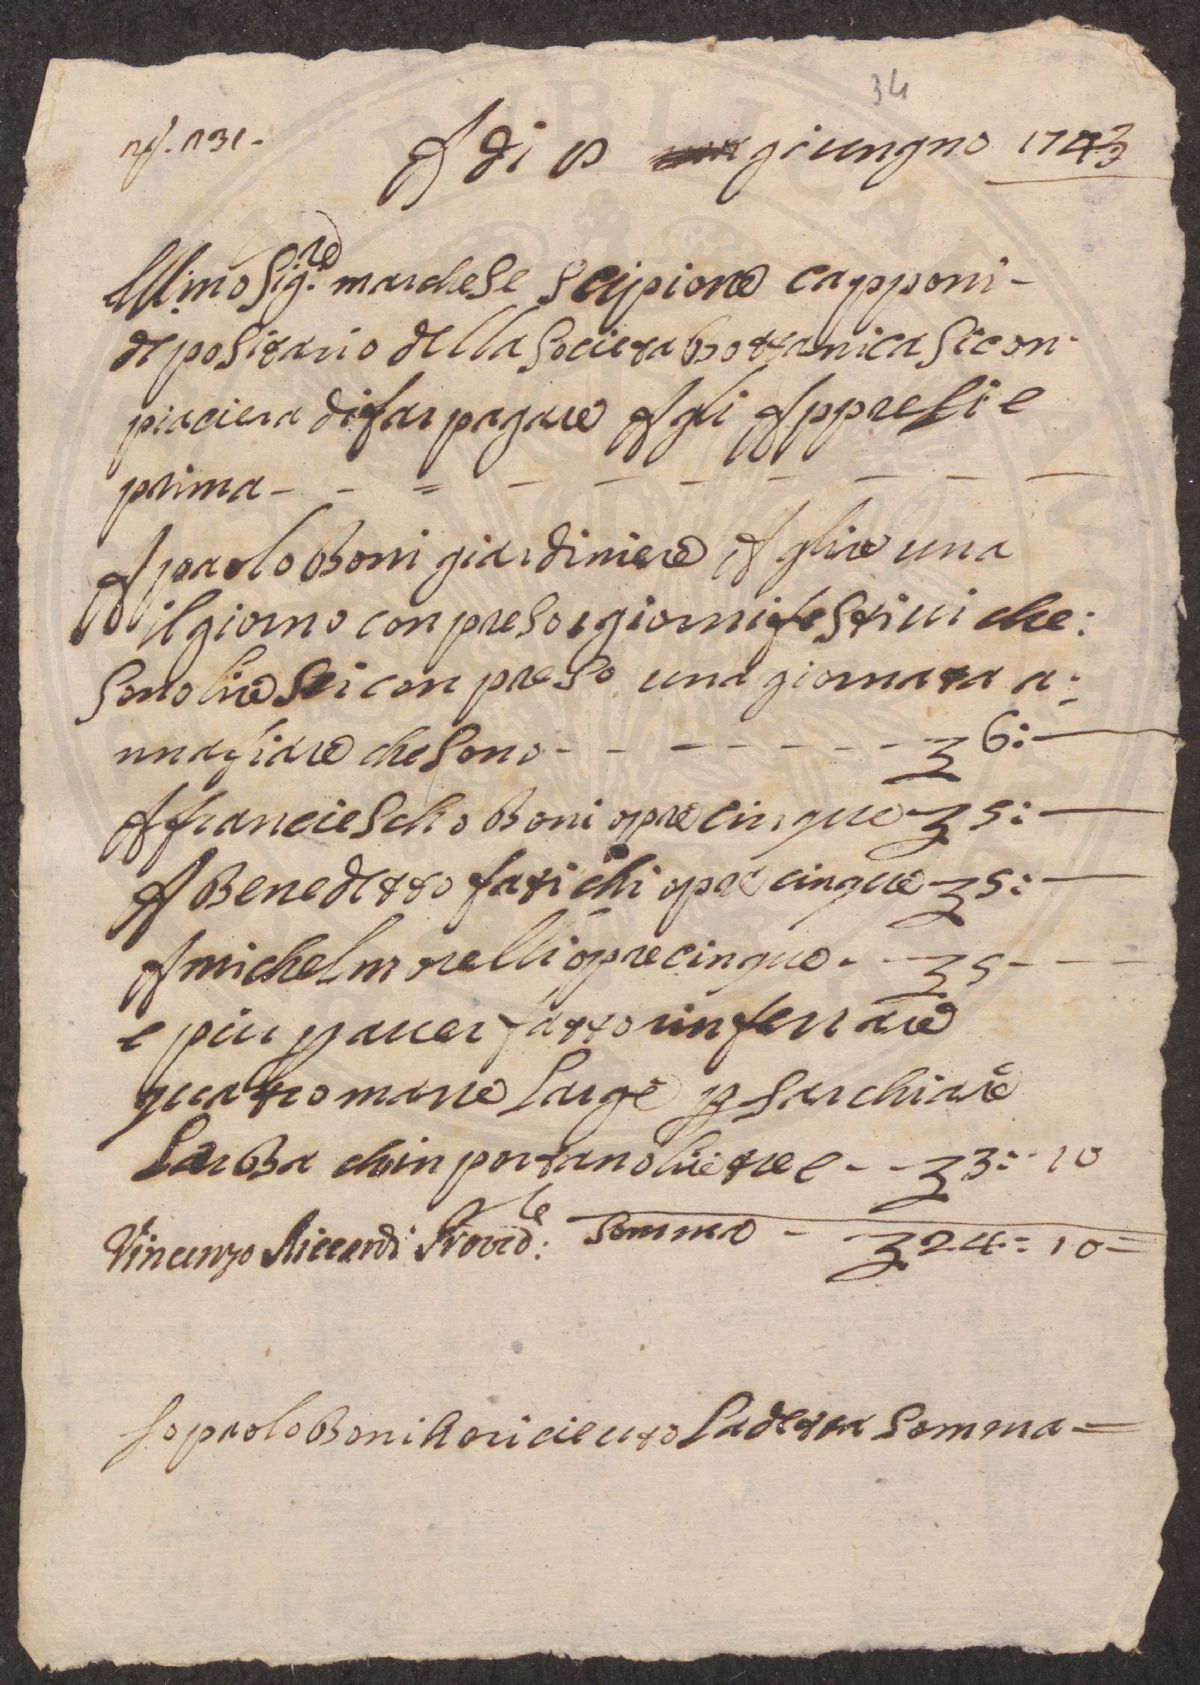 34
A di 8 giungno 1743
Ill.mo Sig.re marchese Scipione Capponi -
depositario della Societa bottanica si con-
piaciera di far pagare A gli Appresi e
prima - - = - - - - - - -
A paolo Boni giardiniere A lire una
il giorno conpreso i giorni festivi che:
sono lire sei conpreso una giornata a:
che sono - - - - - - - - 6: —
A franciescho Boni opre cinque 5: —
A Benedetto fatichi opre cinque 5: —
A michel morelli opre cinque - - 5 - - -
e piu p aver fatto rinferrare
quatro marre large p sarchiare
larba chinportano lire tre e - - 3: - 10
Vincenzo Riccardi Proved.le: Somma - 24: 10 =
Io paolo Boni ho ricieuto la detta Somma =